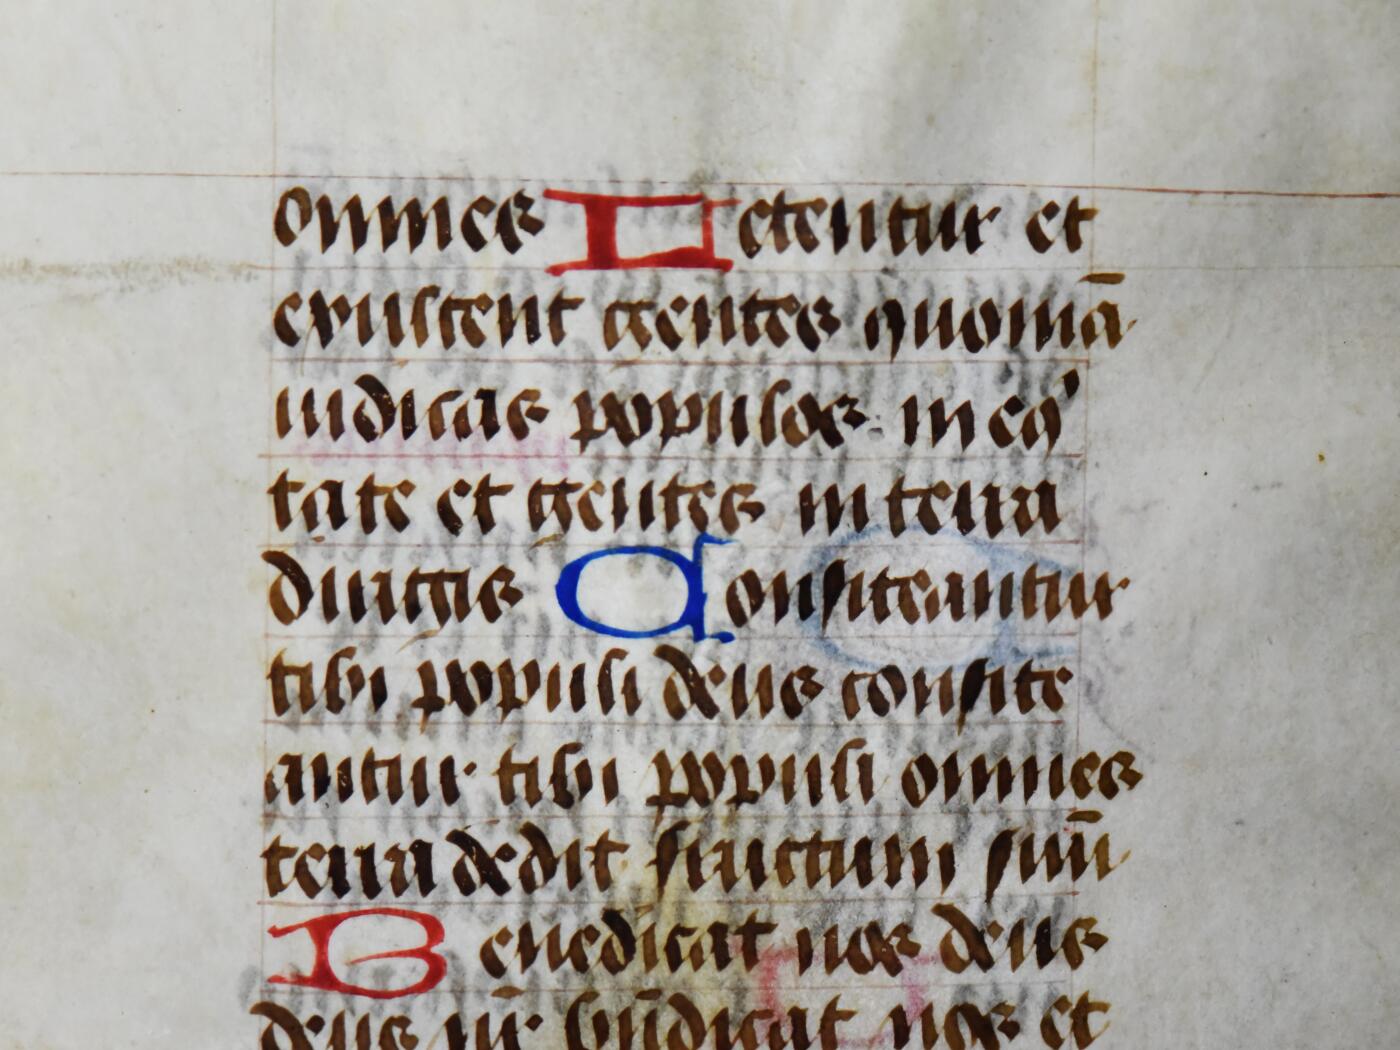 omnes Letentur et
exultent gentes quoniā
iudicas populos in eqͥ
tate et gentes in terra
dirigis Confiteantur
tibi populi deus confite
antur tibi populi omnes
terra dedit fructum suū
Benedicat nos deus
deus nr̄ bn̄dicat nos et